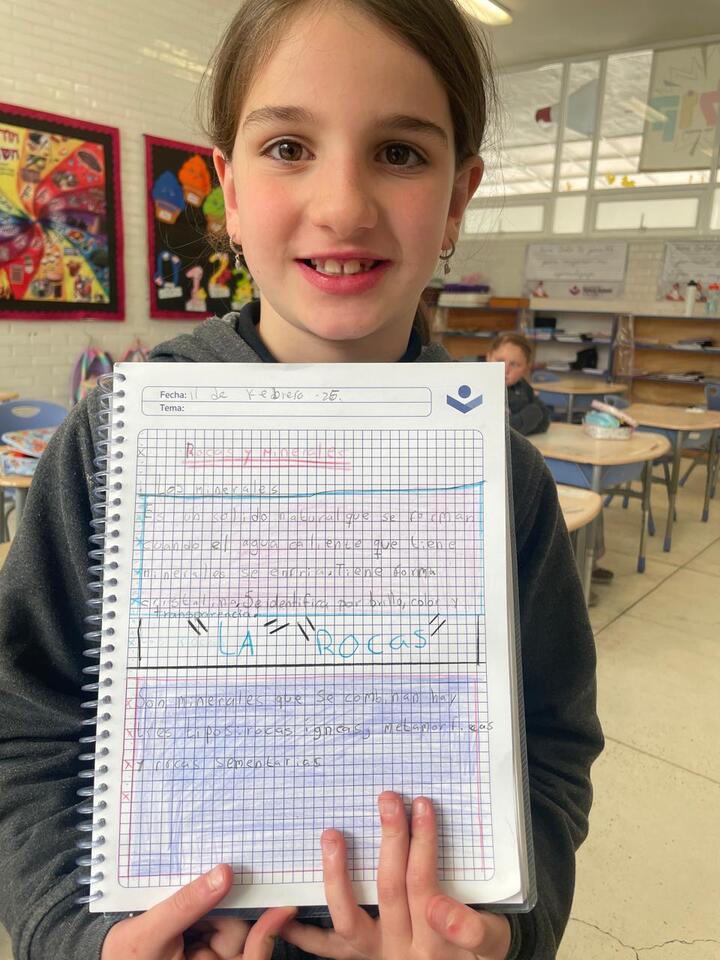 Fecha: 11 de Febrero -25.
Tema:
Rocas y Minerales
Los minerales
Es un solido natural que se forman
cuando el agua caliente que tiene
minerales se enfria. Tiene forma
cristalina. Se identifica por brillo, color y
transparencia.
"LA" "ROCAS"
Son minerales que se combinan hay
tres tipos: rocas ígneas, metamorficas
y rocas sementarias